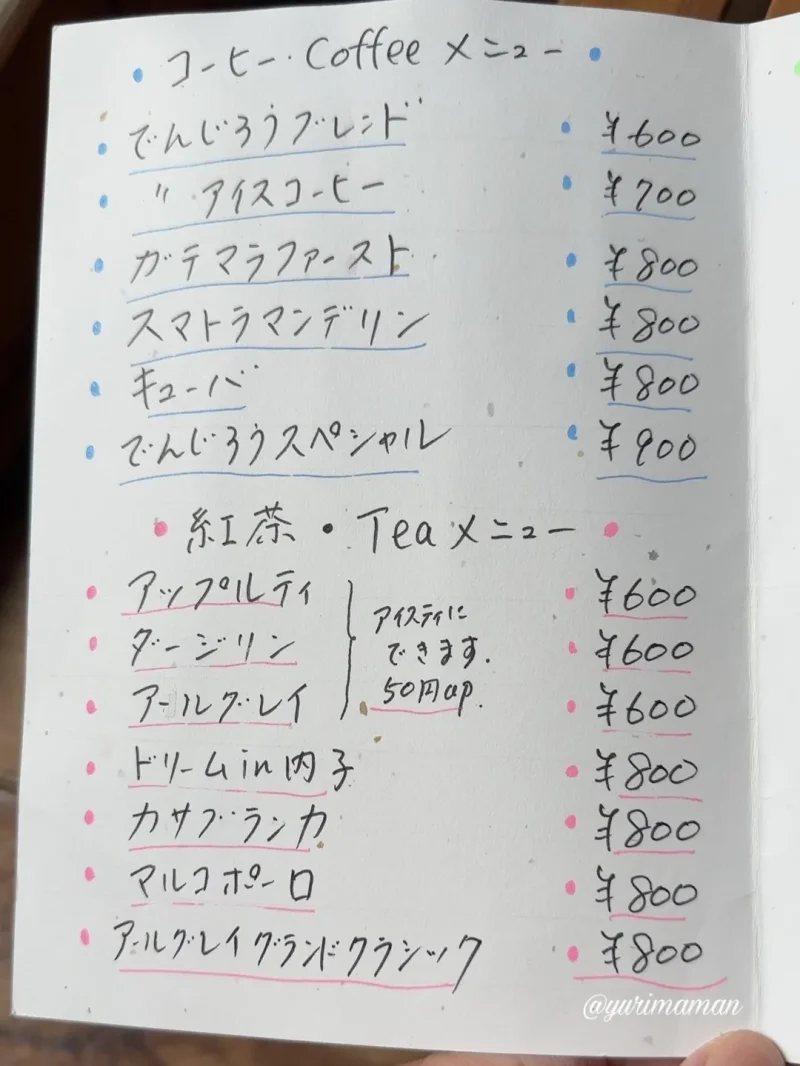 コーヒー・Coffee メニュー
でんじろうブレンド ¥600
〃 アイスコーヒー ¥700
ガテマラファースト ¥800
スマトラマンデリン ¥800
キューバ ¥800
でんじろうスペシャル ¥900
紅茶・Teaメニュー
アップルティ ¥600
ダージリン ¥600
アールグレイ ¥600
アイスティに
できます.
50円up.
ドリームin内子 ¥800
カサブランカ ¥800
マルコポーロ ¥800
アールグレイグランドクラシック ¥800
@yurimaman